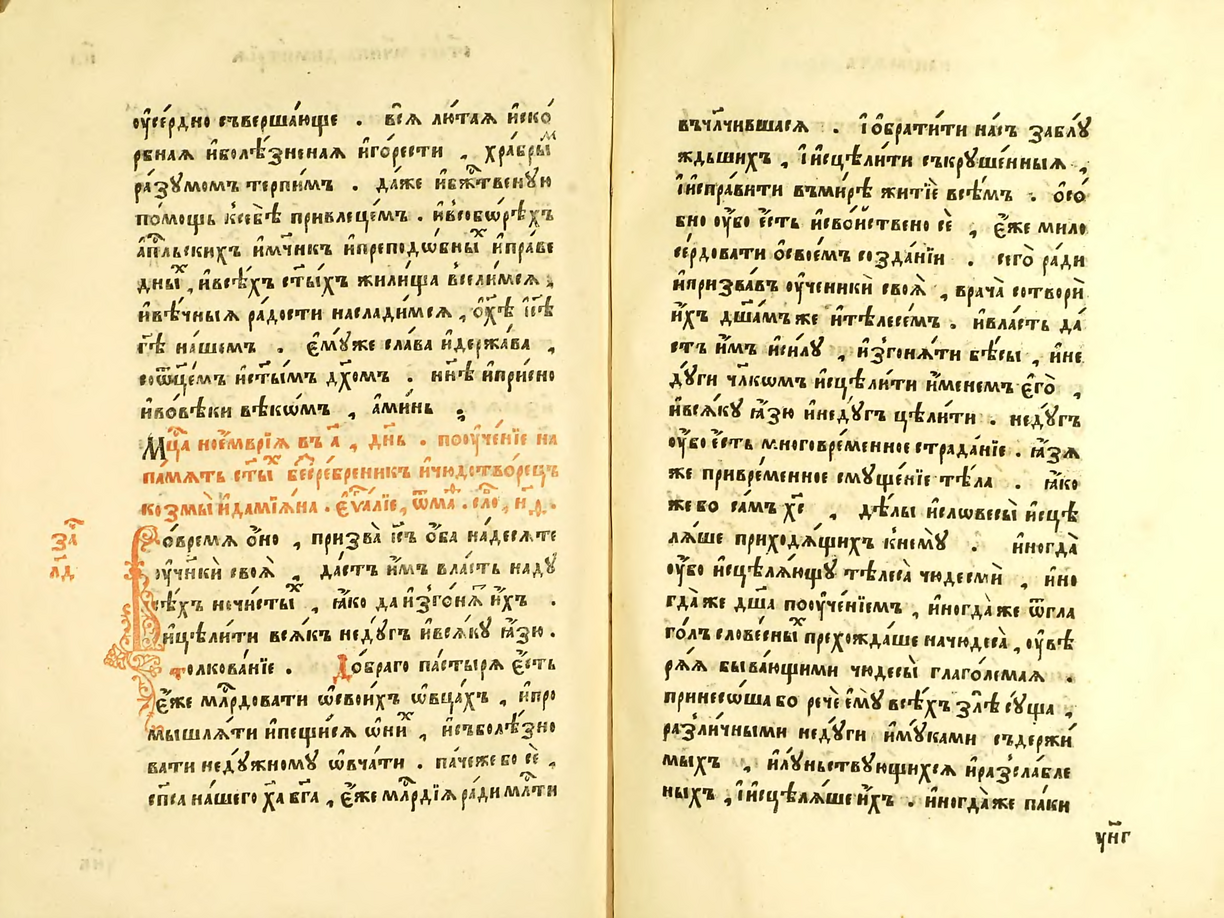 оу҆се́рдно съверша́юще . всѧ̀ лю́таѧ и҆ско́
рбнаѧ и҆болѣ́зненаѧ и҆го́рести , хра́бры́ⷨ
ра́зумомъ терпи́мъ . да́же и҆бж҃твеную
по́мощь ксебѣ̀ привлеце́мъ . и҆всобѡ́рѣхъ
а҆пⷭ҇льскихъ и҆мч҃нкъ и҆преподѡ́бныⷯ и҆пра́ве
дныⷯ , и҆всѣ́хъ ст҃ы́хъ жили́ща вселимсѧ ,
и҆вѣ́чныѧ ра́дости насладимсѧ , ѡ҆хⷭ҇ѣ і҆с҃ѣ
гⷭ҇ѣ на́шемъ . є҆му́же сла́ва и҆держа́ва ,
соѿц҃е́мъ и҆ст҃ы́мъ дх҃омъ . нн҃ѣ и҆при́сно
и҆вовѣ́ки вѣкѡ́мъ , а҆ми́нь .
Мцⷭ҇а ное́мврїѧ въ а҃ , днь . пооуче́нїе на
па́мѧть ст҃ыⷯ бесре́бреникъ и҆чюдотво́рецъ
козмы̀ и҆дамїѧ́на . є҆ѵⷢ҇алїе , ѿмаⷴ҇ . сло́ , н д҃ .
за҃ⷱ
лд
Во́времѧ о҆́но , призва̀ і҆с҃ъ о҆́ба на́десѧте
оу҆ч҃нкѝ своѧ̀ , да́стъ и҆̀мъ вла́сть наду́
сѣ́хъ нечи́стыⷯ , ꙗ҆́ко да и҆зго́нѧⷮ и҆́хъ .
и҆цѣли́ти всѧ́къ неду́гъ и҆всѧ́ку ꙗ҆́зю .
толкова́нїе . До́браго па́стырѧ є҆́сть
є҆́же млⷭ҇рдовати ѡ҆свои́хъ ѡ҆вца́хъ , и҆про
мышлѧ́ти и҆пещи́сѧ ѡ҆ниⷯ , и҆съболѣ́зно
вати неду́жному ѡ҆вча́ти . па́чеже бо сѐ ,
сп҃са на́шего хⷭ҇а бг҃а , є҆́же млⷭ҇рдїѧ ра́ди млⷭ҇ти
въчл҃чи́вшагѧсѧ . і҆ ѡ҆брати́ти на́съ заблу́
жьдьшихъ , і҆ и҆сцѣли́ти съкруше́нныѧ ,
і҆ и҆спра́вити въми́рѣ житїѐ всѣ́мъ . ѻ҆со́
бно оу҆́бо є҆́сть и҆сво́йствено сѐ , є҆́же мило
се́рдовати ѻ҆свое́мъ созда́нїи . сего̀ ра́ди
и҆призва́въ оу҆ченикѝ своѧ̀ , врача̀ сотворѝ
и҆́хъ дш҃а́мъ же и҆тѣлесе́мъ . и҆вла́сть да́
стъ и҆̀мъ и҆си́лу , и҆згонѧ́ти бѣ́сы , и҆не
ду́ги чл҃комъ и҆сцѣли́ти и҆́менемъ є҆го̀ ,
и҆всѧ́ку ꙗ҆́зю и҆неду́гъ цѣли́ти . неду́гъ
оу҆́бо є҆́сть многовре́менное страда́нїе . ꙗ҆́зѧ
же привре́менное смуще́нїе тѣ́ла . ꙗ҆́ко
же бо са́мъ хⷭ҇ъ , дѣ́лы и҆словесы̀ и҆сцѣ
лѧ́ше приходѧ́щихъ кнему̀ . и҆ногда̀
оу҆́бо и҆сцѣлѧ́ющу тѣлеса̀ чюдесмѝ , и҆но
гда̀ же дш҃а пооуче́нїемъ , и҆ногда̀ же ѿгла
го́лъ слове́сныⷯ прехожда́ше начюдеса̀ , оу҆вѣ
рѧ́ѧ быва́ющими чюдесы̀ глаго́лемаѧ .
принесѡ́ша бо речѐ є҆му̀ всѣ́хъ злѣ̀ су́ща ,
разли́чными неду́ги и҆му́ками съдержи́
мыхъ , и҆лу́ньствующихсѧ и҆разсла́бле
ныхъ , і҆ и҆сцѣлѧ́ше и҆́хъ . и҆ногда̀ же па́ки
ун҃г